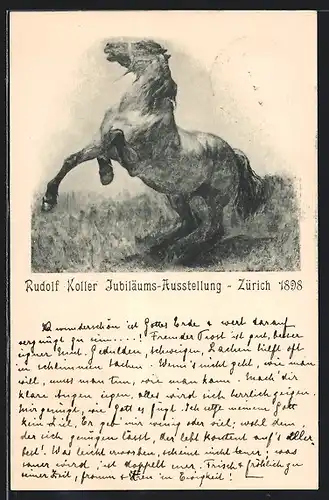 Rudolf Koller Jubiläums-Ausstellung - Zürich 1898
O wunderschön ist Gottes Erde & wert darauf
vergnügt zu sein....! Fremder Trost ist gut, besser
eigner Mut. Gedulden, schweigen, Lachen hilft oft
in schlimmen Sachen. Wenn's nicht geht, wie man
will, muss man tun, wie man kann. Mach' dir
klare Augen eigen, alles wird sich herrlich zeigen.
Mir genügt, wie Gott es fügt. Ich setze meinem Gott
kein Ziel. Er geb mir wenig oder viel; wohl dem,
der sich genügen lässt, der lebt content auf's aller
best! Was leicht
sauer wird, ist doppelt
Frisch & fröhlich zu
seiner Zeit, fromm & in Ewigkeit!